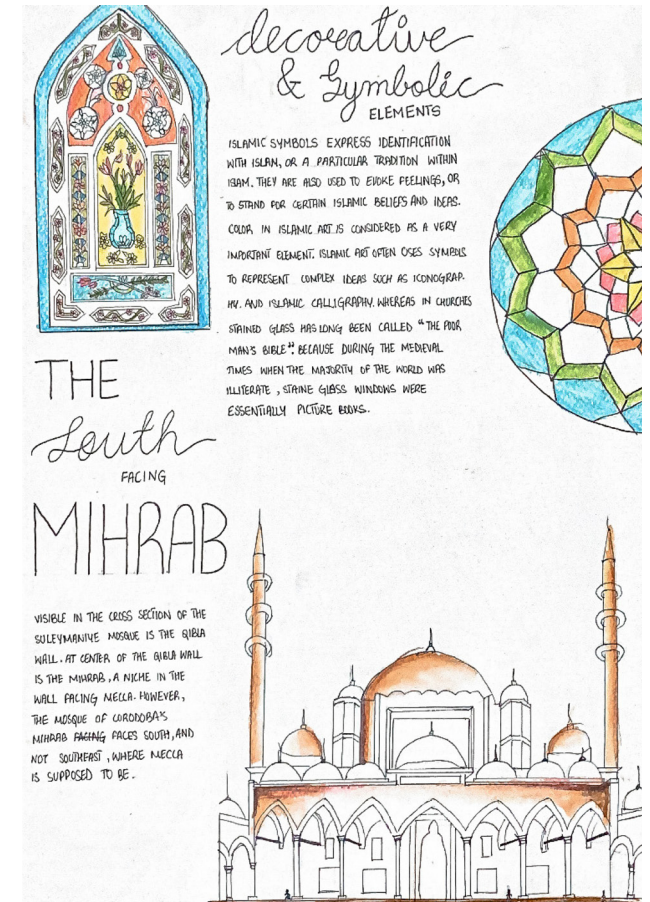 decorative
& Symbolic
ELEMENTS
ISLAMIC SYMBOLS EXPRESS IDENTIFICATION
WITH ISLAN, OR A PARTICULAR TRADITION WITHIN
ISAM. THEY ARE ALSO USED TO EVOKE FEELINGS, OR
TO STAND FOR CERTAIN ISLAMIC BELIEFS AND IDEAS.
COLOR IN ISLAMIC ART IS CONSIDERED AS A VERY
IMPORTANT ELEMENT. ISLAMIC ART OFTEN USES SYMBOLS
TO REPRESENT COMPLEX IDEAS SUCH AS ICONOGRAP-
HY. AND ISLAMIC CALLIGRAPHY. WHEREAS IN CHURCHES
STAINED GLASS HAS LONG BEEN CALLED "THE POOR
MAN'S BIBLE". BECAUSE DURING THE MEDIEVAL
TIMES WHEN THE MAJORITY OF THE WORLD WAS
ILLITERATE, STAINE GLASS WINDOWS WERE
ESSENTIALLY PICTURE BOOKS.
THE
South
FACING
MIHRAB
VISIBLE IN THE CROSS SECTION OF THE
SULEYMANIYE MOSQUE IS THE QIBLA
WALL. AT CENTER OF THE QIBLA WALL
IS THE MIHRAB, A NICHE IN THE
WALL FACING MECCA. HOWEVER,
THE MOSQUE OF CORODOBA'S
MIHRAB FACING FACES SOUTH, AND
NOT SOUTHEAST, WHERE MECCA
IS SUPPOSED TO BE.